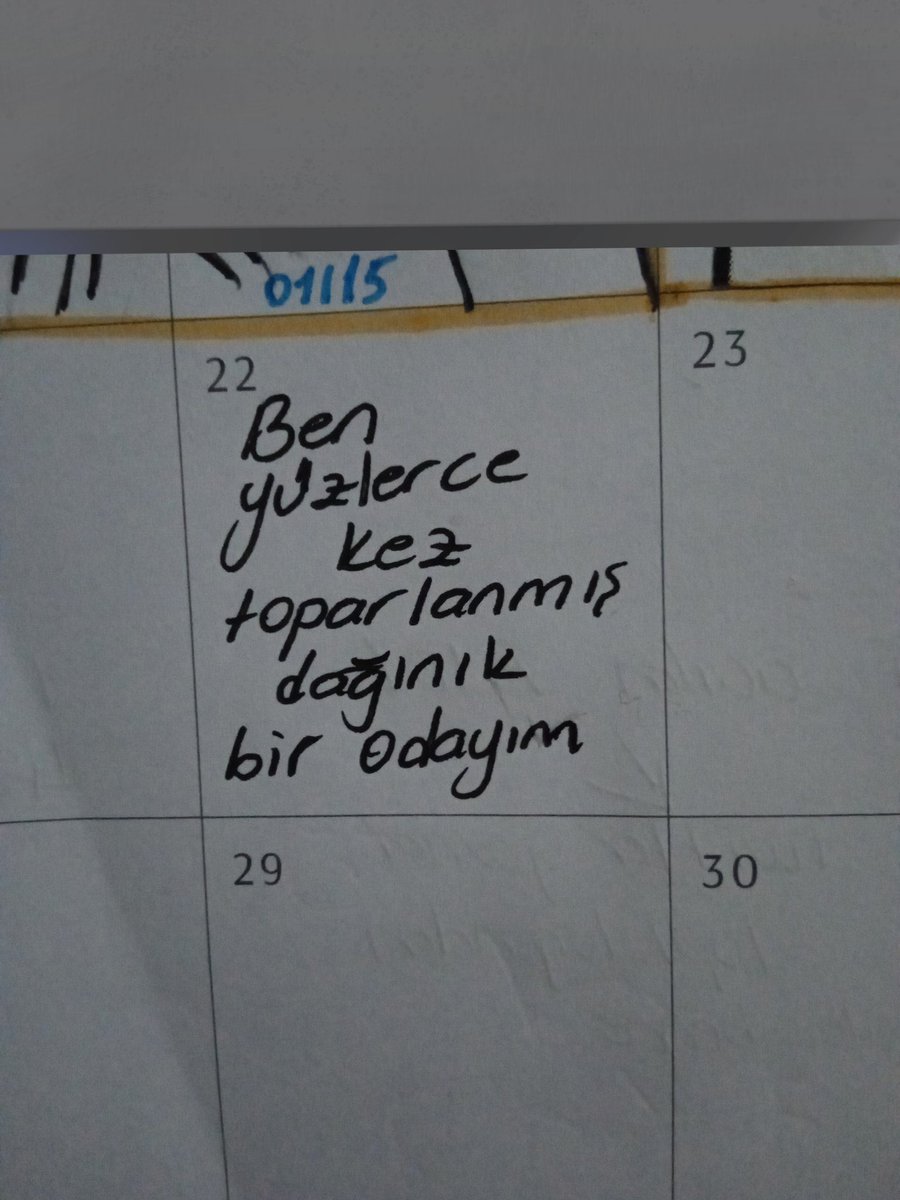 01115
22
23
Ben
yüzlerce
kez
toparlanmış
dağınık
bir odayım
29
30